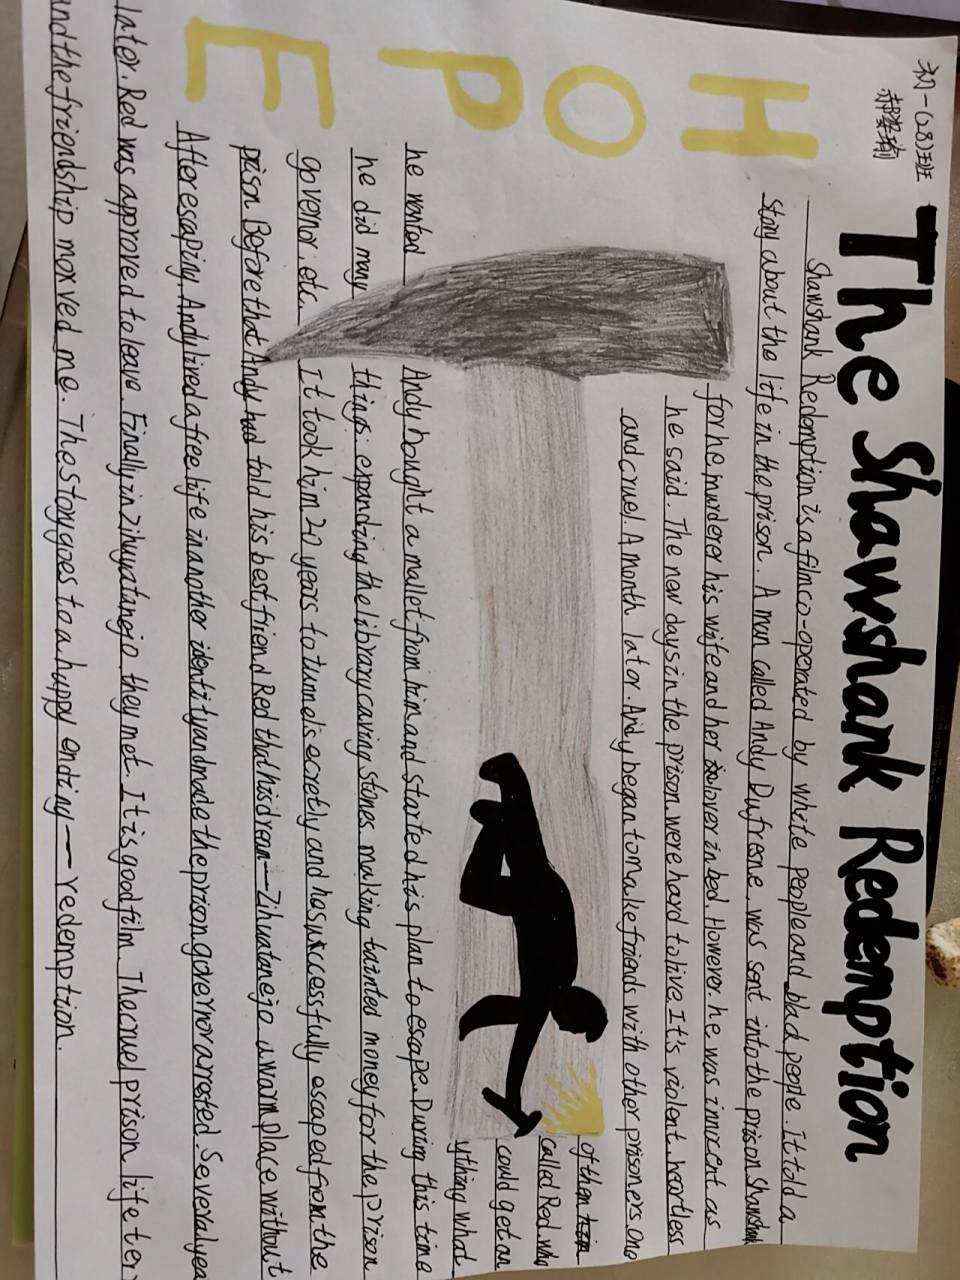 初一(28)班
郝姿瑜
The Shawshank Redemption
HOPE
Shawshank Redemption is a film co-operated by white people and black people. It told a
story about the life in the prison. A man called Andy Dufresne was sent into the prison Shawshank
for he murderer his wife and her lover in bed. However, he was innocent as
he said. The new days in the prison were hard to live. It's violent, heartless
and cruel. A month later, Andy began to make friends with other prisoners. One
of them
called Red, who
could get an
ything what
he wanted Andy bought a mallet from him and started his plan to escape. During this time
he did may things: expanding the library, caving stones, making tainted money for the prison
governor. etc. It took him 20 years to tunnel secretly and has successfully escaped from the
prison. Before that Andy had told his best friend Red that his dream—Zihuatanejo a warm place without
After escaping, Andy lived a free life in another identity and made the prison governor arrested. Several yea
later, Red was approved to leave. Finally in zihuyatanejo they met. It is good film. The cruel prison life ter
and the friendship moved me. The story goes to a happy ending—redemption.